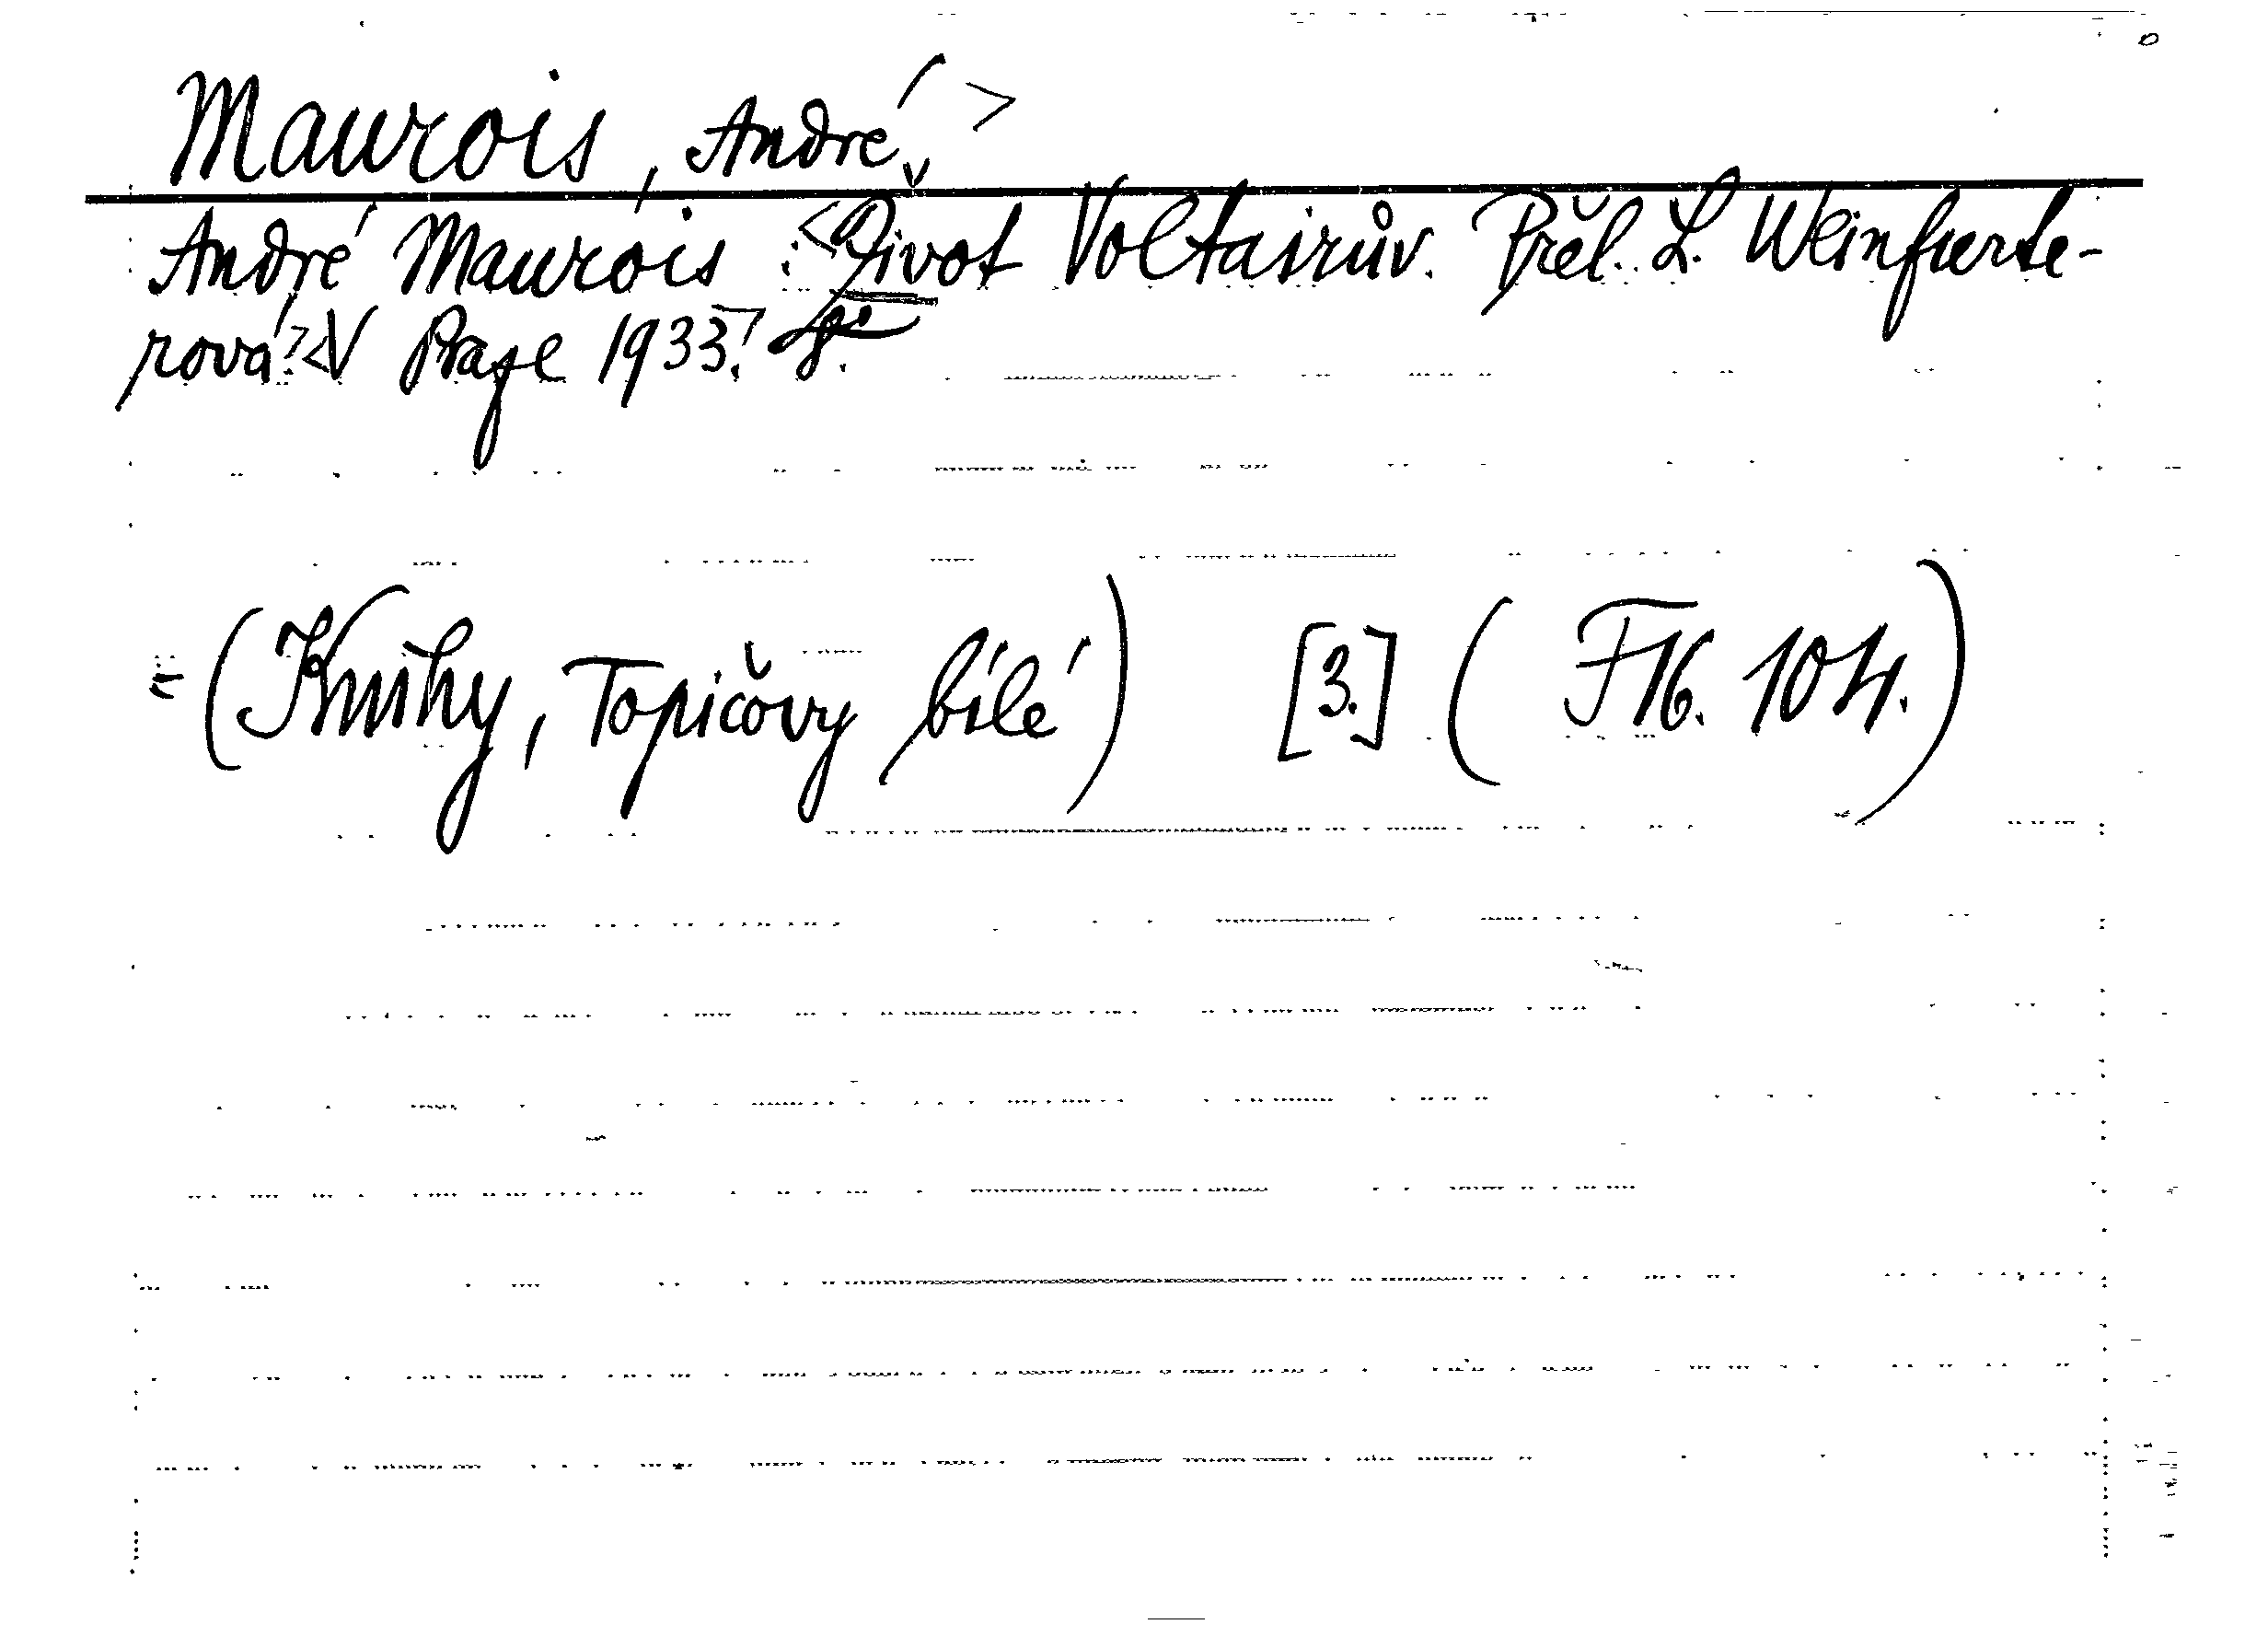 Maurois, André >
André Maurois : <Život Voltairův. Přel. L. Weinfurte-
rová.> <V Praze 1933.> 8°.
= (Knihy, Topičovy bílé) [3.] (F 16. 104.)